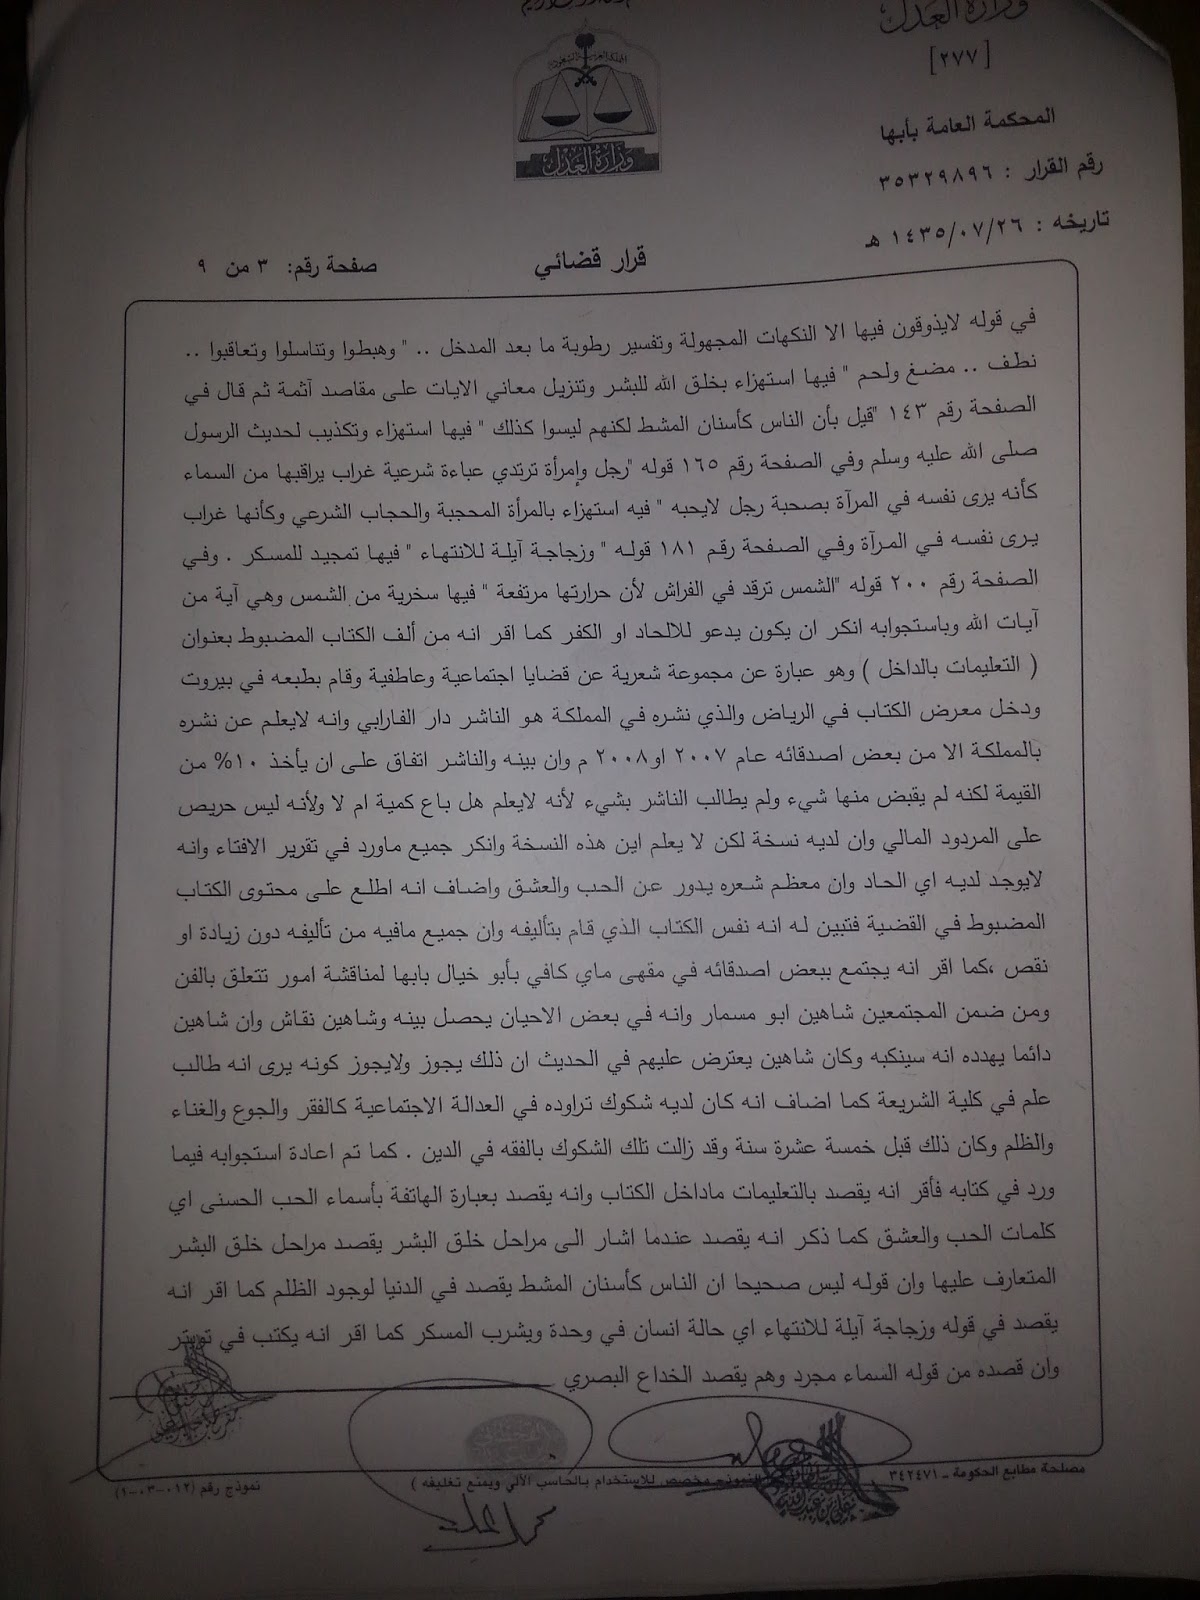 وزارة العدل
[٢٧٧]
المملكة العربية السعودية
وزارة العدل
المحكمة العامة بأبها
رقم القرار : ٣٥٣٢٩٨٩٦
تاريخه : ١٤٣٥/٠٧/٢٦ هـ
قرار قضائي
صفحة رقم: ٣ من ٩
في قوله لايذوقون فيها الا النكهات المجهولة وتفسير رطوبة ما بعد المدخل .. " وهبطوا وتناسلوا وتعاقبوا ..
نطف .. مضغ ولحم " فيها استهزاء بخلق الله للبشر وتنزيل معاني الايات على مقاصد آثمة ثم قال في
الصفحة رقم ١٤٣ "قيل بأن الناس كأسنان المشط لكنهم ليسوا كذلك " فيها استهزاء وتكذيب لحديث الرسول
صلى الله عليه وسلم وفي الصفحة رقم ١٦٥ قوله "رجل وإمرأة ترتدي عباءة شرعية غراب يراقبها من السماء
كأنه يرى نفسه في المرآة بصحبة رجل لايحبه " فيه استهزاء بالمرأة المحجبة والحجاب الشرعي وكأنها غراب
يرى نفسه في المرآة وفي الصفحة رقم ١٨١ قوله " وزجاجة آيلة للانتهاء " فيها تمجيد للمسكر . وفي
الصفحة رقم ٢٠٠ قوله "الشمس ترقد في الفراش لأن حرارتها مرتفعة " فيها سخرية من الشمس وهي آية من
آيات الله وباستجوابه انكر ان يكون يدعو للالحاد او الكفر كما اقر انه من ألف الكتاب المضبوط بعنوان
( التعليمات بالداخل ) وهو عبارة عن مجموعة شعرية عن قضايا اجتماعية وعاطفية وقام بطبعه في بيروت
ودخل معرض الكتاب في الرياض والذي نشره في المملكة هو الناشر دار الفارابي وانه لايعلم عن نشره
بالمملكة الا من بعض اصدقائه عام ٢٠٠٧ او٢٠٠٨ م وان بينه والناشر اتفاق على ان يأخذ ١٠% من
القيمة لكنه لم يقبض منها شيء ولم يطالب الناشر بشيء لأنه لايعلم هل باع كمية ام لا ولأنه ليس حريص
على المردود المالي وان لديه نسخة لكن لا يعلم اين هذه النسخة وانكر جميع ماورد في تقرير الافتاء وانه
لايوجد لديه اي الحاد وان معظم شعره يدور عن الحب والعشق واضاف انه اطلع على محتوى الكتاب
المضبوط في القضية فتبين له انه نفس الكتاب الذي قام بتأليفه وان جميع مافيه من تأليفه دون زيادة او
نقص ،كما اقر انه يجتمع ببعض اصدقائه في مقهى ماي كافي بأبو خيال بابها لمناقشة امور تتعلق بالفن
ومن ضمن المجتمعين شاهين ابو مسمار وانه في بعض الاحيان يحصل بينه وشاهين نقاش وان شاهين
دائما يهدده انه سينكبه وكان شاهين يعترض عليهم في الحديث ان ذلك يجوز ولايجوز كونه يرى انه طالب
علم في كلية الشريعة كما اضاف انه كان لديه شكوك تراوده في العدالة الاجتماعية كالفقر والجوع والغناء
والظلم وكان ذلك قبل خمسة عشرة سنة وقد زالت تلك الشكوك بالفقه في الدين . كما تم اعادة استجوابه فيما
ورد في كتابه فأقر انه يقصد بالتعليمات ماداخل الكتاب وانه يقصد بعبارة الهاتفة بأسماء الحب الحسنى اي
كلمات الحب والعشق كما ذكر انه يقصد عندما اشار الى مراحل خلق البشر يقصد مراحل خلق البشر
المتعارف عليها وان قوله ليس صحيحا ان الناس كأسنان المشط يقصد في الدنيا لوجود الظلم كما اقر انه
يقصد في قوله وزجاجة آيلة للانتهاء اي حالة انسان في وحدة ويشرب المسكر كما اقر انه يكتب في تويتر
وان قصده من قوله السماء مجرد وهم يقصد الخداع البصري
مصلحة مطابع الحكومة - ٣٤٢٤٧١
النموذج مخصص للاستخدام بالحاسب الآلي ويمنع تغليفه )
نموذج رقم (١٢-٠٣-٠١)